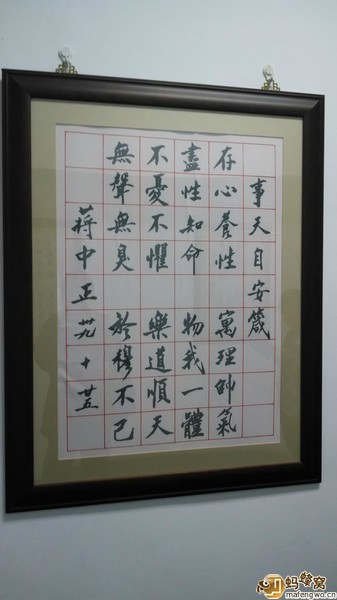 事天自安箴
存心養性 寓理帥氣
盡性知命 物我一體
不憂不懼 樂道順天
無聲無臭 於穆不已
蔣中正 卅九 十 廿五
蚂蜂窝
mafengwo.cn